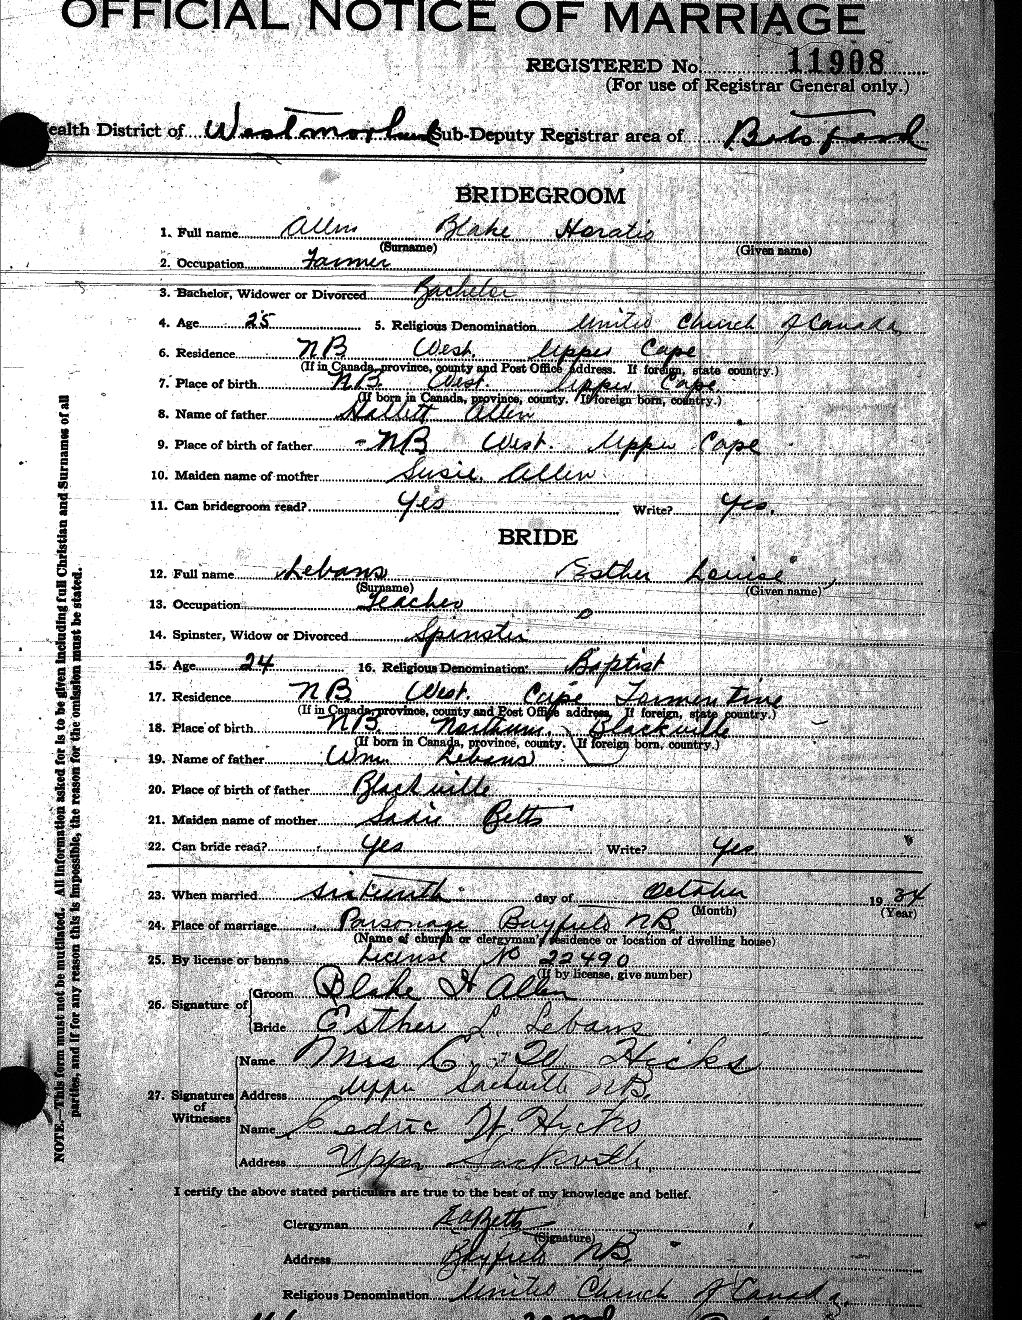 OFFICIAL NOTICE OF MARRIAGE
REGISTERED No. 11908
(For use of Registrar General only.)
ealth District of Westmorland Sub-Deputy Registrar area of Botsford
BRIDEGROOM
1. Full name Allen Blake Horatio
(Surname) (Given name)
2. Occupation Farmer
3. Bachelor, Widower or Divorced Bachelor
4. Age 25 5. Religious Denomination United Church of Canada
6. Residence NB West. Upper Cape
(If in Canada, province, county and Post Office address. If foreign, state country.)
7. Place of birth NB. West. Upper Cape.
(If born in Canada, province, county. If foreign born, country.)
8. Name of father Hallett Allen
9. Place of birth of father NB West. Upper Cape
10. Maiden name of mother Susie Allen
11. Can bridegroom read? Yes Write? Yes.
BRIDE
12. Full name Lebans Esther Louise
(Surname) (Given name)
13. Occupation Teacher
14. Spinster, Widow or Divorced Spinster
15. Age 24 16. Religious Denomination Baptist
17. Residence NB West. Cape Tormentine
(If in Canada, province, county and Post Office address. If foreign, state country.)
18. Place of birth NB. Northum. Blackville
(If born in Canada, province, county. If foreign born, country.)
19. Name of father Wm. Lebans
20. Place of birth of father Blackville
21. Maiden name of mother Sadie Betts
22. Can bride read? Yes Write? Yes
23. When married sixteenth day of October 1934
(Month) (Year)
24. Place of marriage Parsonage Bayfield NB.
(Name of church or clergyman's residence or location of dwelling house)
25. By license or banns License No 22490
(If by license, give number)
26. Signature of Groom Blake H Allen
Bride Esther L. Lebans
27. Signatures of Witnesses Name Mrs C. W Hicks
Address Upper Sackville NB.
Name Cedric W. Hicks
Address Upper Sackville
I certify the above stated particulars are true to the best of my knowledge and belief.
Clergyman Betts
(Signature)
Address Bayfield NB.
Religious Denomination United Church of Canada.
NOTE.—This form must not be mutilated. All information asked for is to be given including full Christian and Surnames of all
parties, and if for any reason this is impossible, the reason for the omission must be stated.